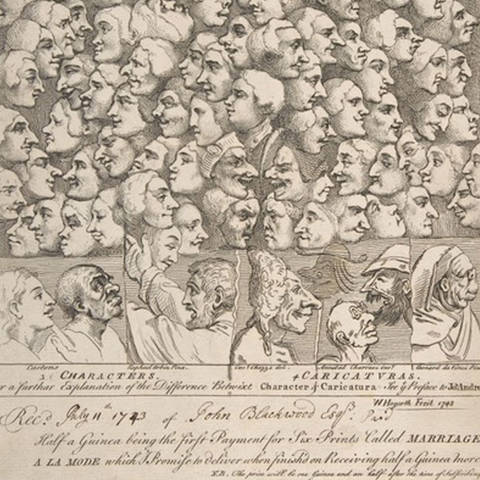 Cartons Raphael Urbin Pinx. Cav.r Chezze del. Annibal Charracc Len.t Leonard da Vinci Pinx
3 CHARACTERS. 4 CARICATVRAS.
r a farthar Explanation of the Difference Betwixt Character & Caricatura See ye Preface to Jo.h Andre
W Hogarth Fecit 1743
Rec.d July 11th 1743 of John Blackwood Esq.r Paid
Half a Guinea being the first Payment for Six Prints Called MARRIAGE
A LA MODE which I Promise to deliver when finish'd on Receiving half a Guinea more
N.B. The price will be one Guinea and an half after the time of Subscribing